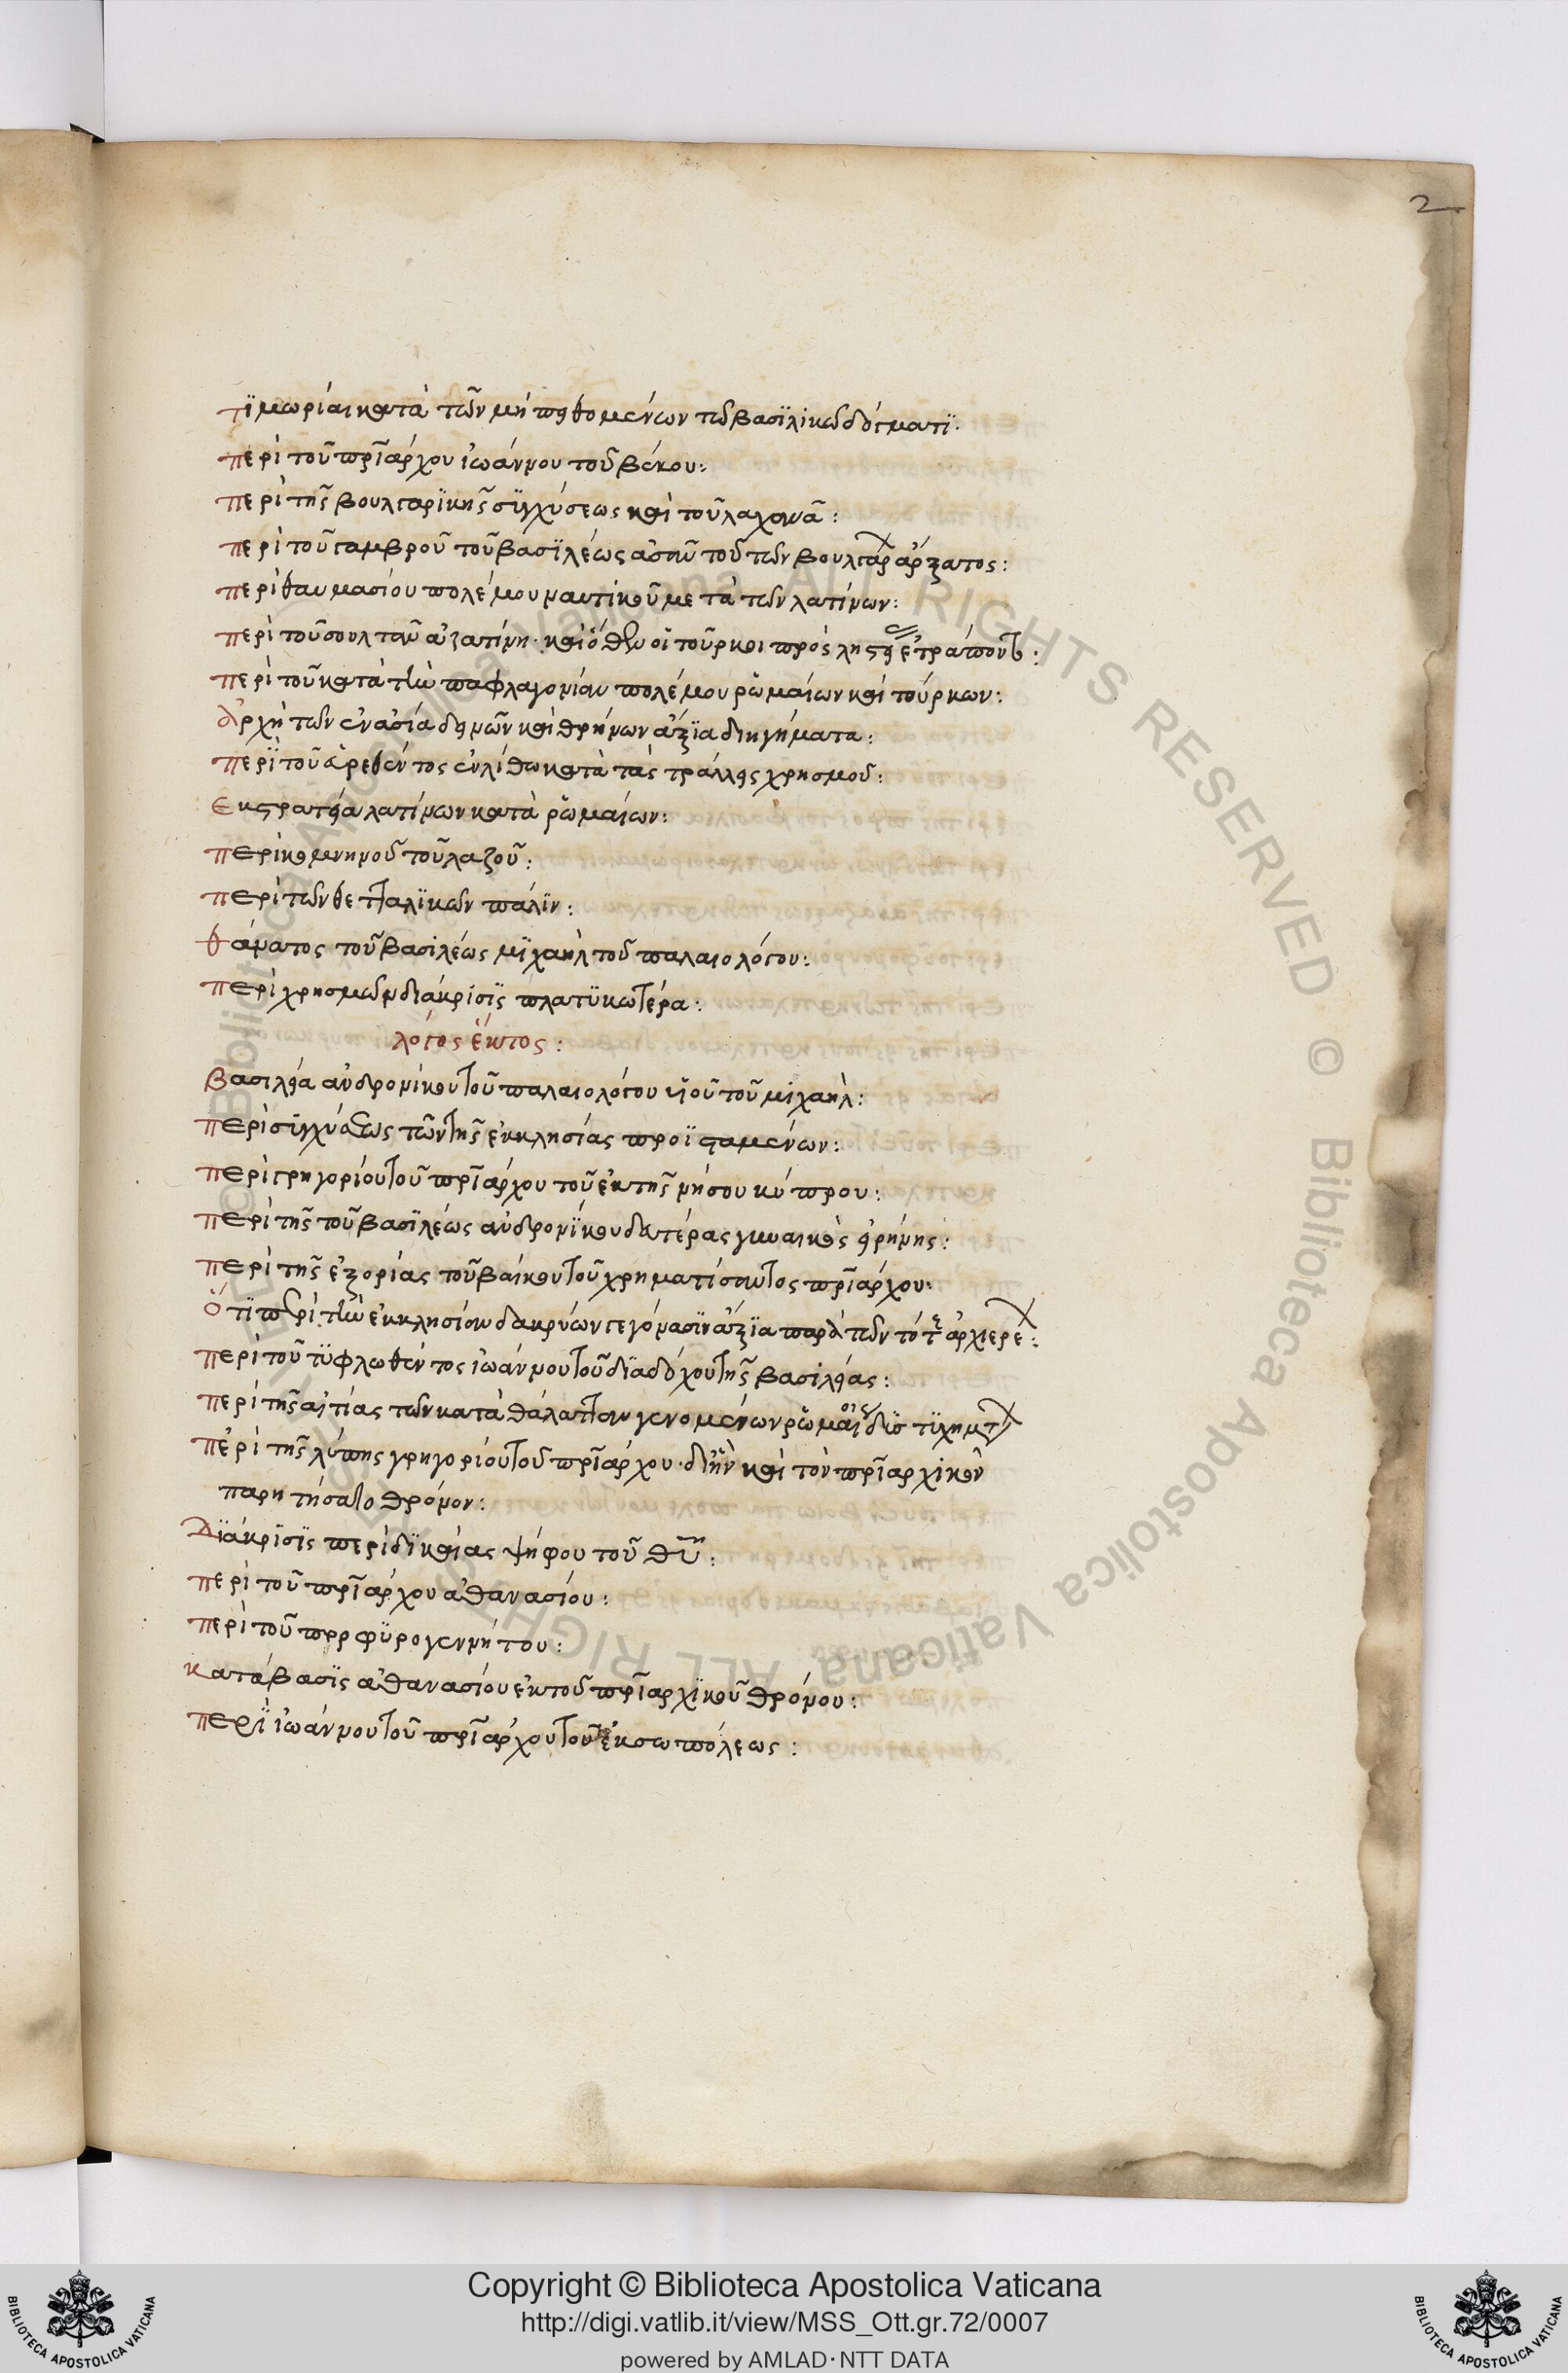 2
τϊμωρίαι κατὰ τῶν μὴ πειθομένων τῶ βασϊλικῶ δόγματϊ·
περὶ τοῦ πρϊάρχου ἰωάννου τοῦ βέκου:
περὶ τῆς βουλγαρϊκῆς συγχύσεως καὶ τοῦ λαχανᾶ:
περὶ τοῦ γαμβροῦ τοῦ βασϊλέως ἀσὰν τοῦ τῶν βουλγάρ ἄρξατος:
περὶ θαυμασίου πολέμου ναυτικοῦ μετὰ τῶν λατίνων:
περὶ τοῦ σουλτὰν ἀζατίνη· καὶ ὅθεν οἱ τοῦρκοι πρὸς ληστείας ἐτράποντο:
περὶ τοῦ κατὰ τὴν παφλαγονίαν πολέμου ῥωμαίων καὶ τούρκων:
ἀρχὴ τῶν ἐν ἀσία δεινῶν καὶ θρήνων ἄξϊα διηγήματα:
περϊ τοῦ εὑρεθέντος ἐν λίθω κατὰ τὰς τράλλεις χρησμοῦ:
Εκστρατεία λατίνων κατὰ ῥωμαίων:
περὶ κομνηνοῦ τοῦ λαζοῦ:
περὶ τῶν θετταλϊκῶν πάλϊν:
θάνατος τοῦ βασιλέως μϊχαὴλ τοῦ παλαιολόγου:
περὶ χρησμῶν διάκρισϊς πλατϋκωτέρα:
λόγος ἕκτος:
βασιλεία ἀνδρονίκου τοῦ παλαιολόγου υἱοῦ τοῦ μιχαήλ:
περὶ συγχύσεως τῶν τῆς ἐκκλησίας προϊσταμένων:
περὶ γρηγορίου τοῦ πρϊάρχου τοῦ ἐκ τῆς νήσου κύπρου:
περὶ τῆς τοῦ βασϊλέως ἀνδρονϊκου δευτέρας γυναικὸς εἰρήνης:
περὶ τῆς ἐξορίας τοῦ βαίκου τοῦ χρηματίσαντος πρϊάρχου:
ὅτϊ περὶ τὴν ἐκκλησίαν δακρύων γεγόνασϊν ἄξϊα παρὰ τῶν τότε ἀρχιερέ:
περὶ τοῦ τϋφλωθέντος ἰωάννου τοῦ δϊαδόχου τῆς βασιλείας:
περὶ τῆς αἰτίας τῶν κατὰ θάλατταν γενομένων ῥωμαίοις δυστϋχημάτ
περὶ τῆς λύπης γρηγορίου τοῦ πρϊάρχου· δι' ἣν καὶ τὸν πρϊαρχικὸν
παρητήσατο θρόνον:
Δϊάκρϊσϊς περὶ δϊκαίας ψήφου τοῦ θῦ:
περὶ τοῦ πρϊάρχου ἀθανασίου:
περὶ τοῦ πορφϋρογεννήτου:
κατάβασϊς ἀθανασίου ἐκ τοῦ πρϊαρχϊκοῦ θρόνου:
περϊ ἰωάννου τοῦ πρϊάρχου τοῦ ἐκ σωπόλεως:
Copyright © Biblioteca Apostolica Vaticana
http://digi.vatlib.it/view/MSS_Ott.gr.72/0007
powered by AMLAD·NTT DATA
BIBLIOTECA APOSTOLICA VATICANA
BIBLIOTECA APOSTOLICA VATICANA
© Biblioteca Apostolica Vaticana ALL RIGHTS RESERVED © Biblioteca Apostolica Vaticana ALL RIGHTS RESERVED